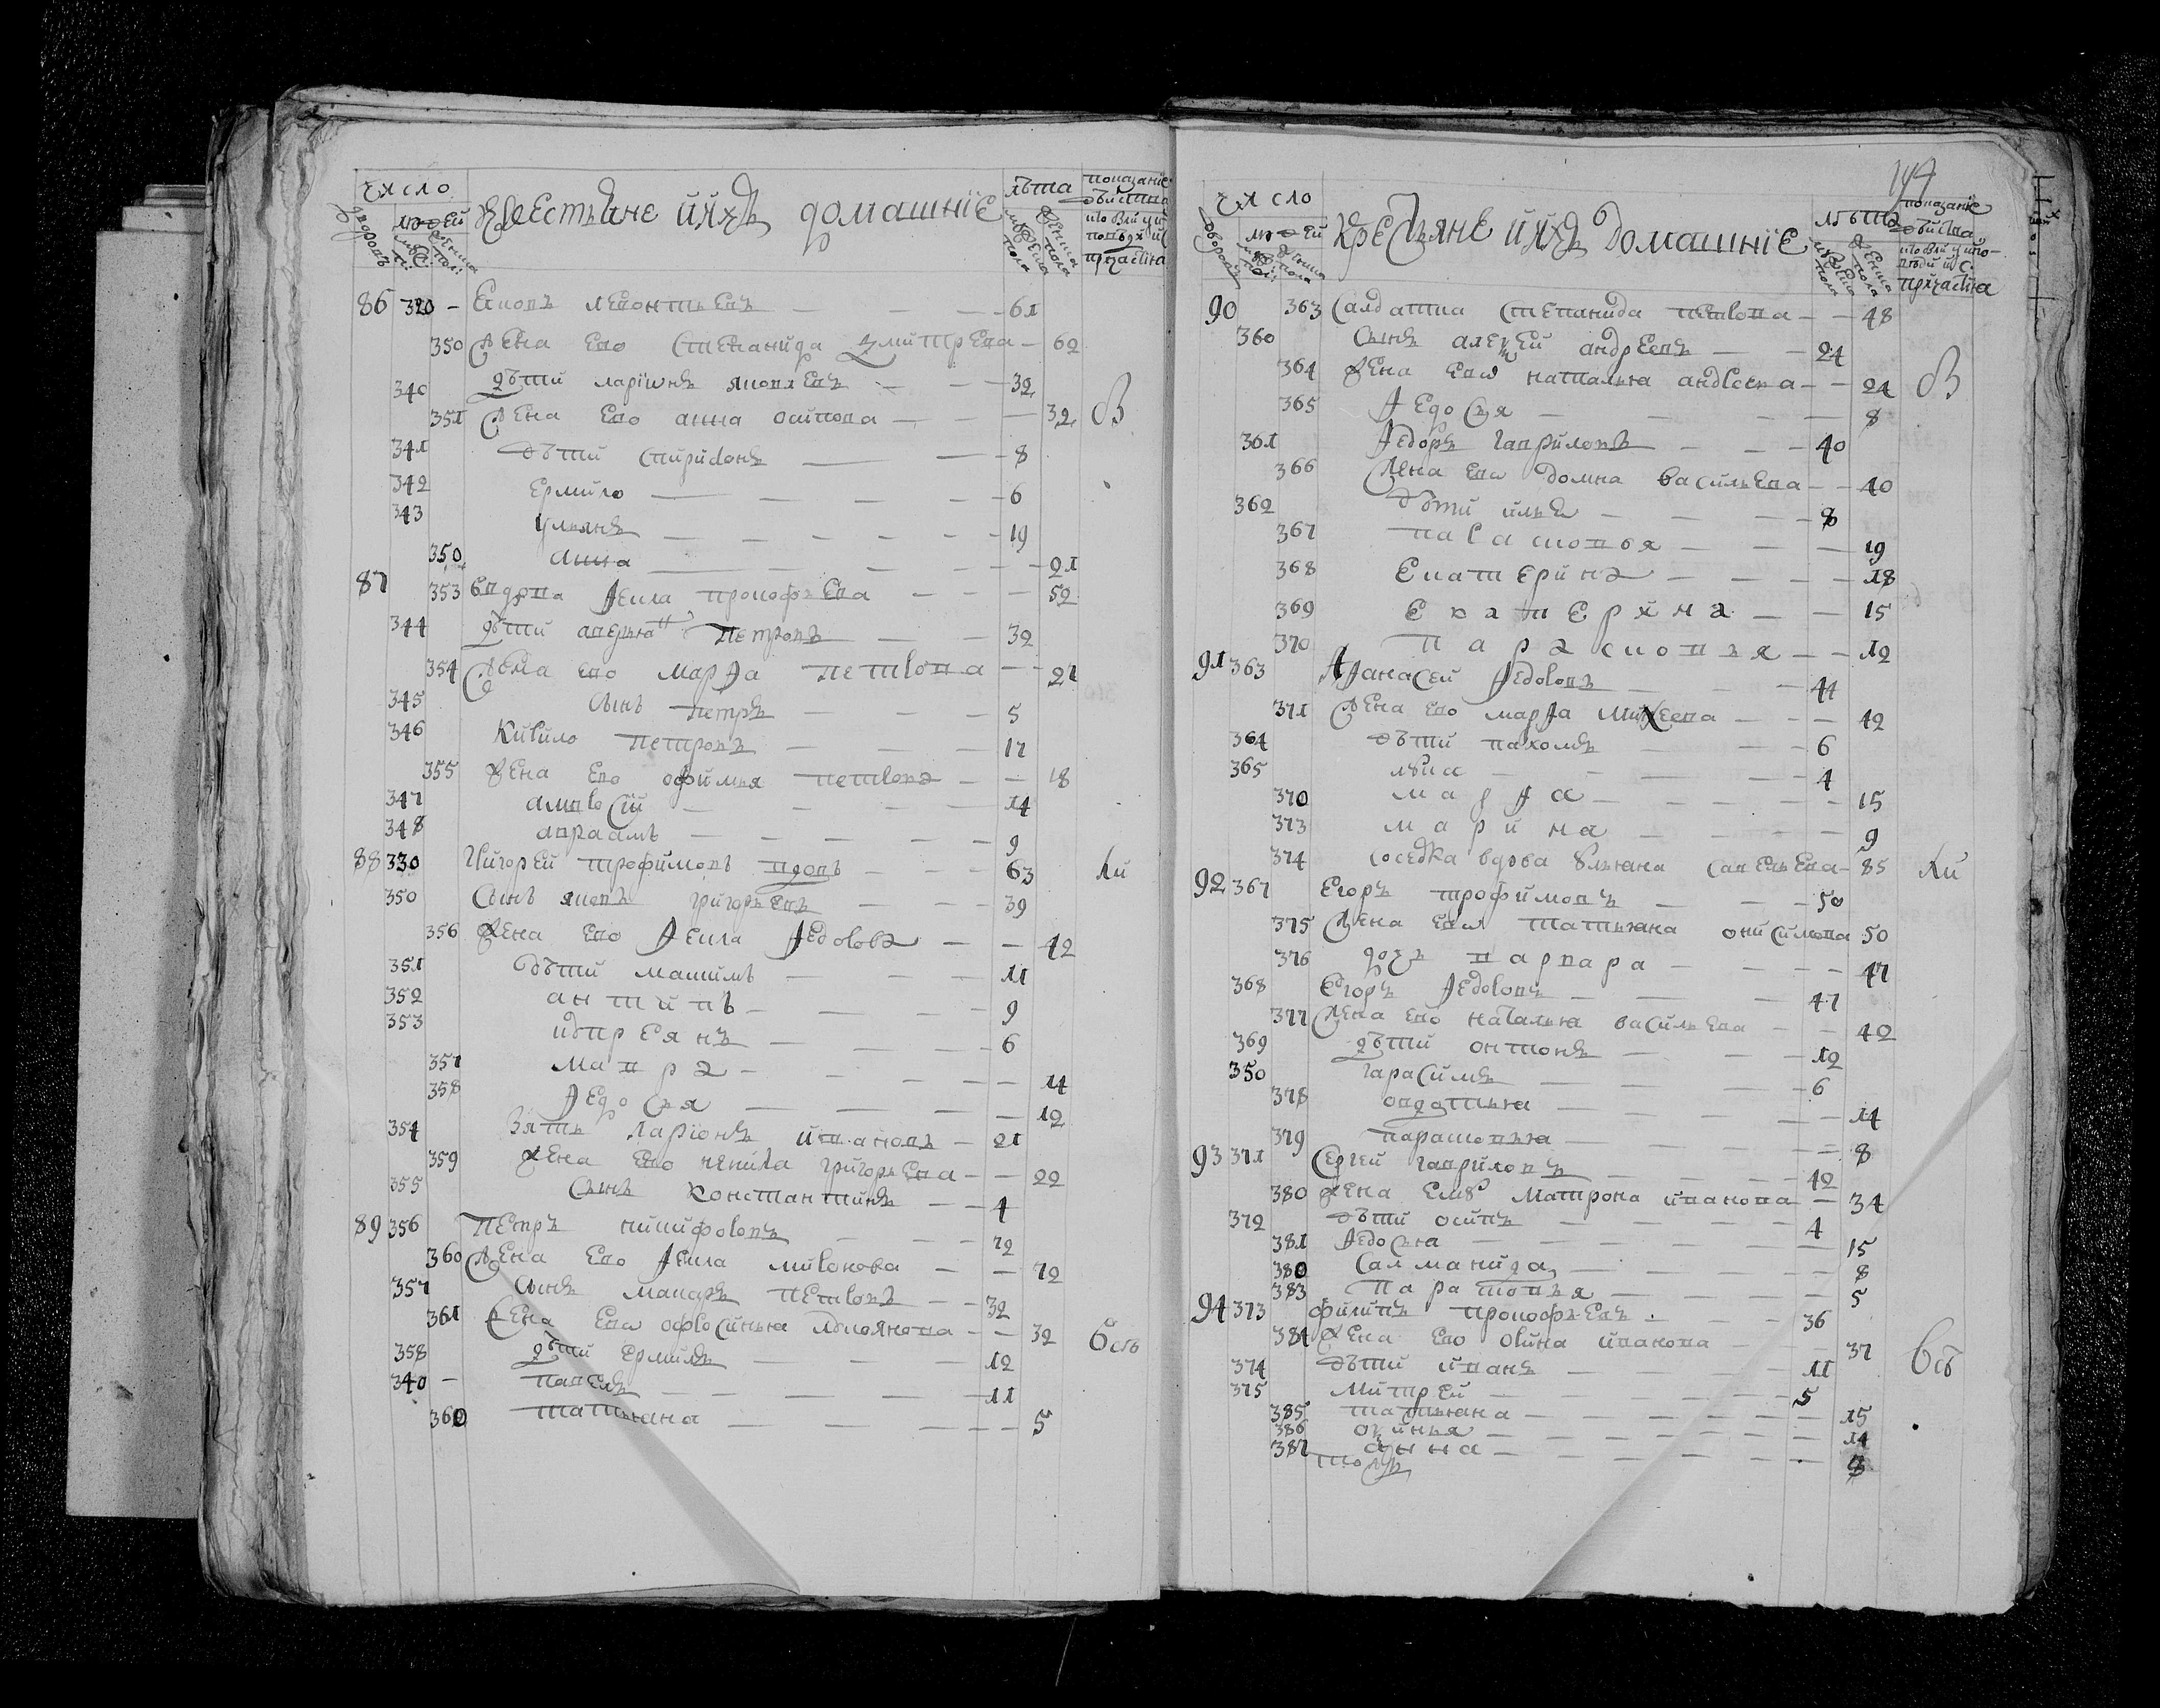 число
Крестьяне и их домашние
лѣта
показание
людей
86 320 Яковъ Леонтьевъ 61
350 Жена ево Степанида Дмитрева 62
340 дѣти Ларионъ Яковлевъ 32
351 Жена ево Анна Осипова 32
341 дѣти Спиридонъ 8
342 Ермило 6
343 Ульянъ 19
350 Анна 21
87 353 вдова Фекла Прокофьева 52
344 дѣти Аверьянъ Петровъ 32
354 Жена ево Марфа Петрова 27
345 сынъ Петръ 5
346 Кирило Петровъ 17
355 Жена ево Офимья Петрова 18
347 Амвросий 14
348 Авраамъ 9
88 330 Григорей Трофимовъ вдовъ 63
350 Сынъ Яковъ Григорьевъ 39
356 Жена ево Фекла Федорова 42
351 дѣти Максимъ 11
352 Антипъ 9
353 Кипреянъ 6
357 Мавра 14
358 Федосья 12
354 Зять Ларионъ Ивановъ 21
359 Жена ево Ненила Григорьева 22
355 Сынъ Константинъ 4
89 356 Петръ Никифоровъ 72
360 Жена ево Фекла Миронова 72
357 Сынъ Макаръ Петровъ 32
361 Жена ево Офросинья Лукоянова 32
358 дѣти Ермилъ 12
340 Павелъ 11
360 Татьяна 5
144
число
Крестьяне и их домашние
лѣта
показание
людей
90 363 Салдатка Степанида Петрова 48
360 Сынъ Алексей Андреевъ 24
364 Жена ево Наталья Андреева 24
365 Федосья 8
361 Федоръ Гавриловъ 40
366 Жена ево Домна Васильева 40
362 дѣти Илья 8
367 Парасковья 19
368 Екатерина 18
369 Екатерина 15
370 Парасковья 12
91 363 Афанасей Федоровъ 44
371 Жена ево Марфа Михеева 42
364 дѣти Пахомъ 6
365 Лука 4
370 Марфа 15
373 Марина 9
374 Соседка вдова Ульяна Савельева 85
92 367 Егоръ Трофимовъ 50
375 Жена ево Татьяна Онисимова 50
376 дочь Варвара 47
368 Егоръ Федоровъ 47
377 Жена ево Наталья Васильева 42
369 дѣти Онтонъ 12
350 Гарасимъ 6
378 Овдотья 14
379 Парасковья 8
93 371 Сергей Гавриловъ 42
380 Жена ему Матрона Иванова 34
372 дѣти Осипъ 4
381 Федосья 15
380 Салманида 8
383 Парасковья 5
94 373 Филипъ Прокофьевъ 36
384 Жена ево Орина Иванова 37
374 дѣти Иванъ 11
375 Митрей 5
385 Татьяна 15
386 Оксинья 14
387 Анна 8